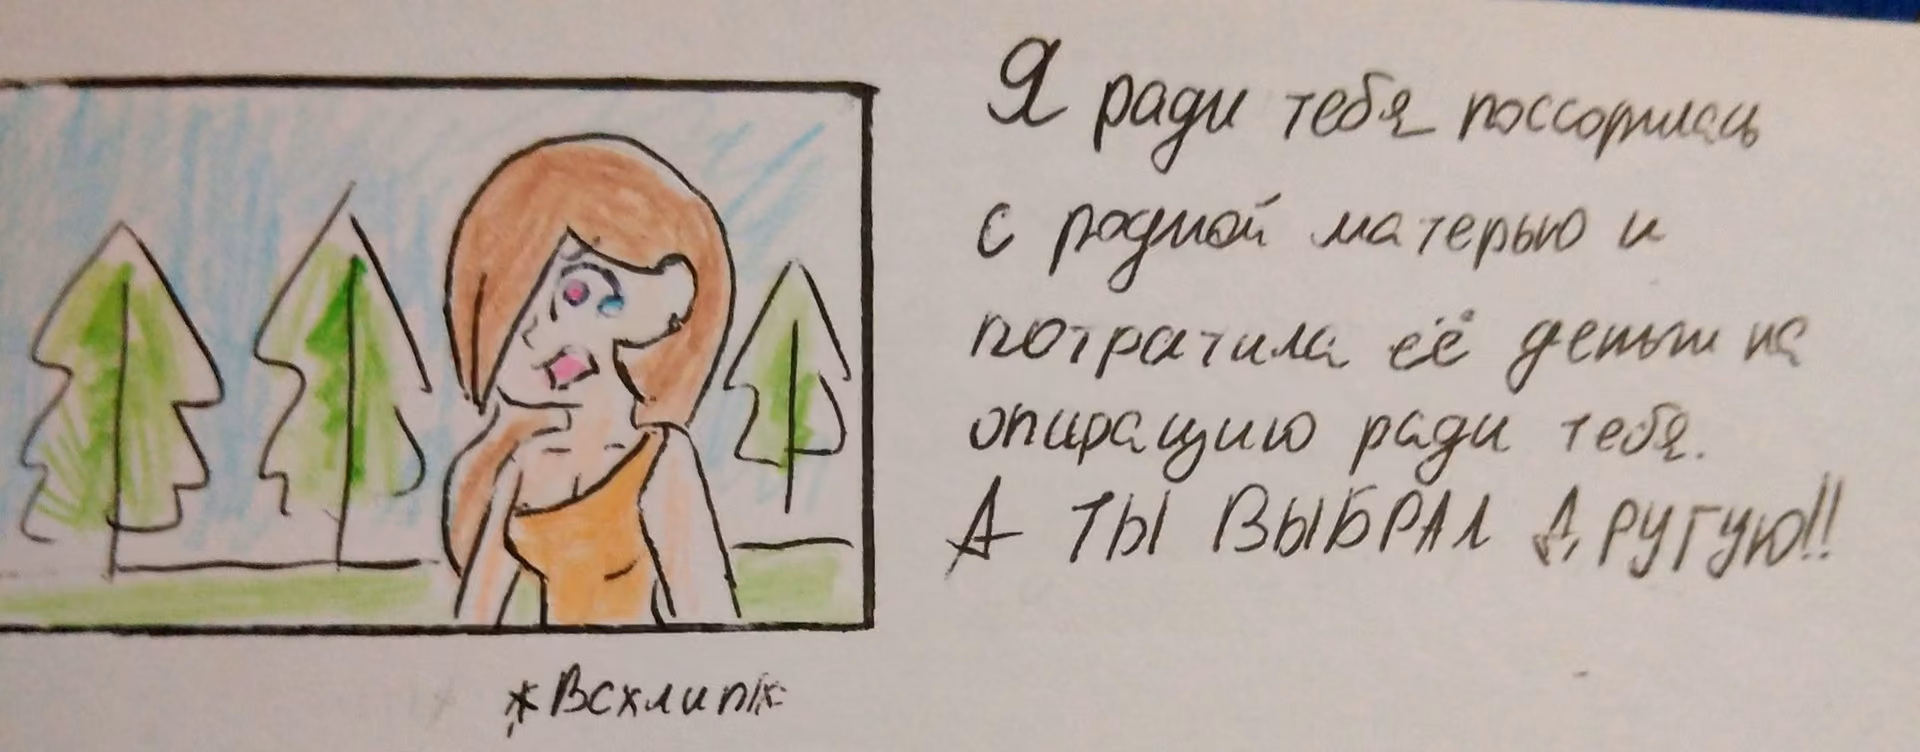 Я ради тебя поссорилась
с родной матерью и
потратила её деньги на
опирацию ради тебя.
А ТЫ ВЫБРАЛ ДРУГУЮ!!
*Всхлип*